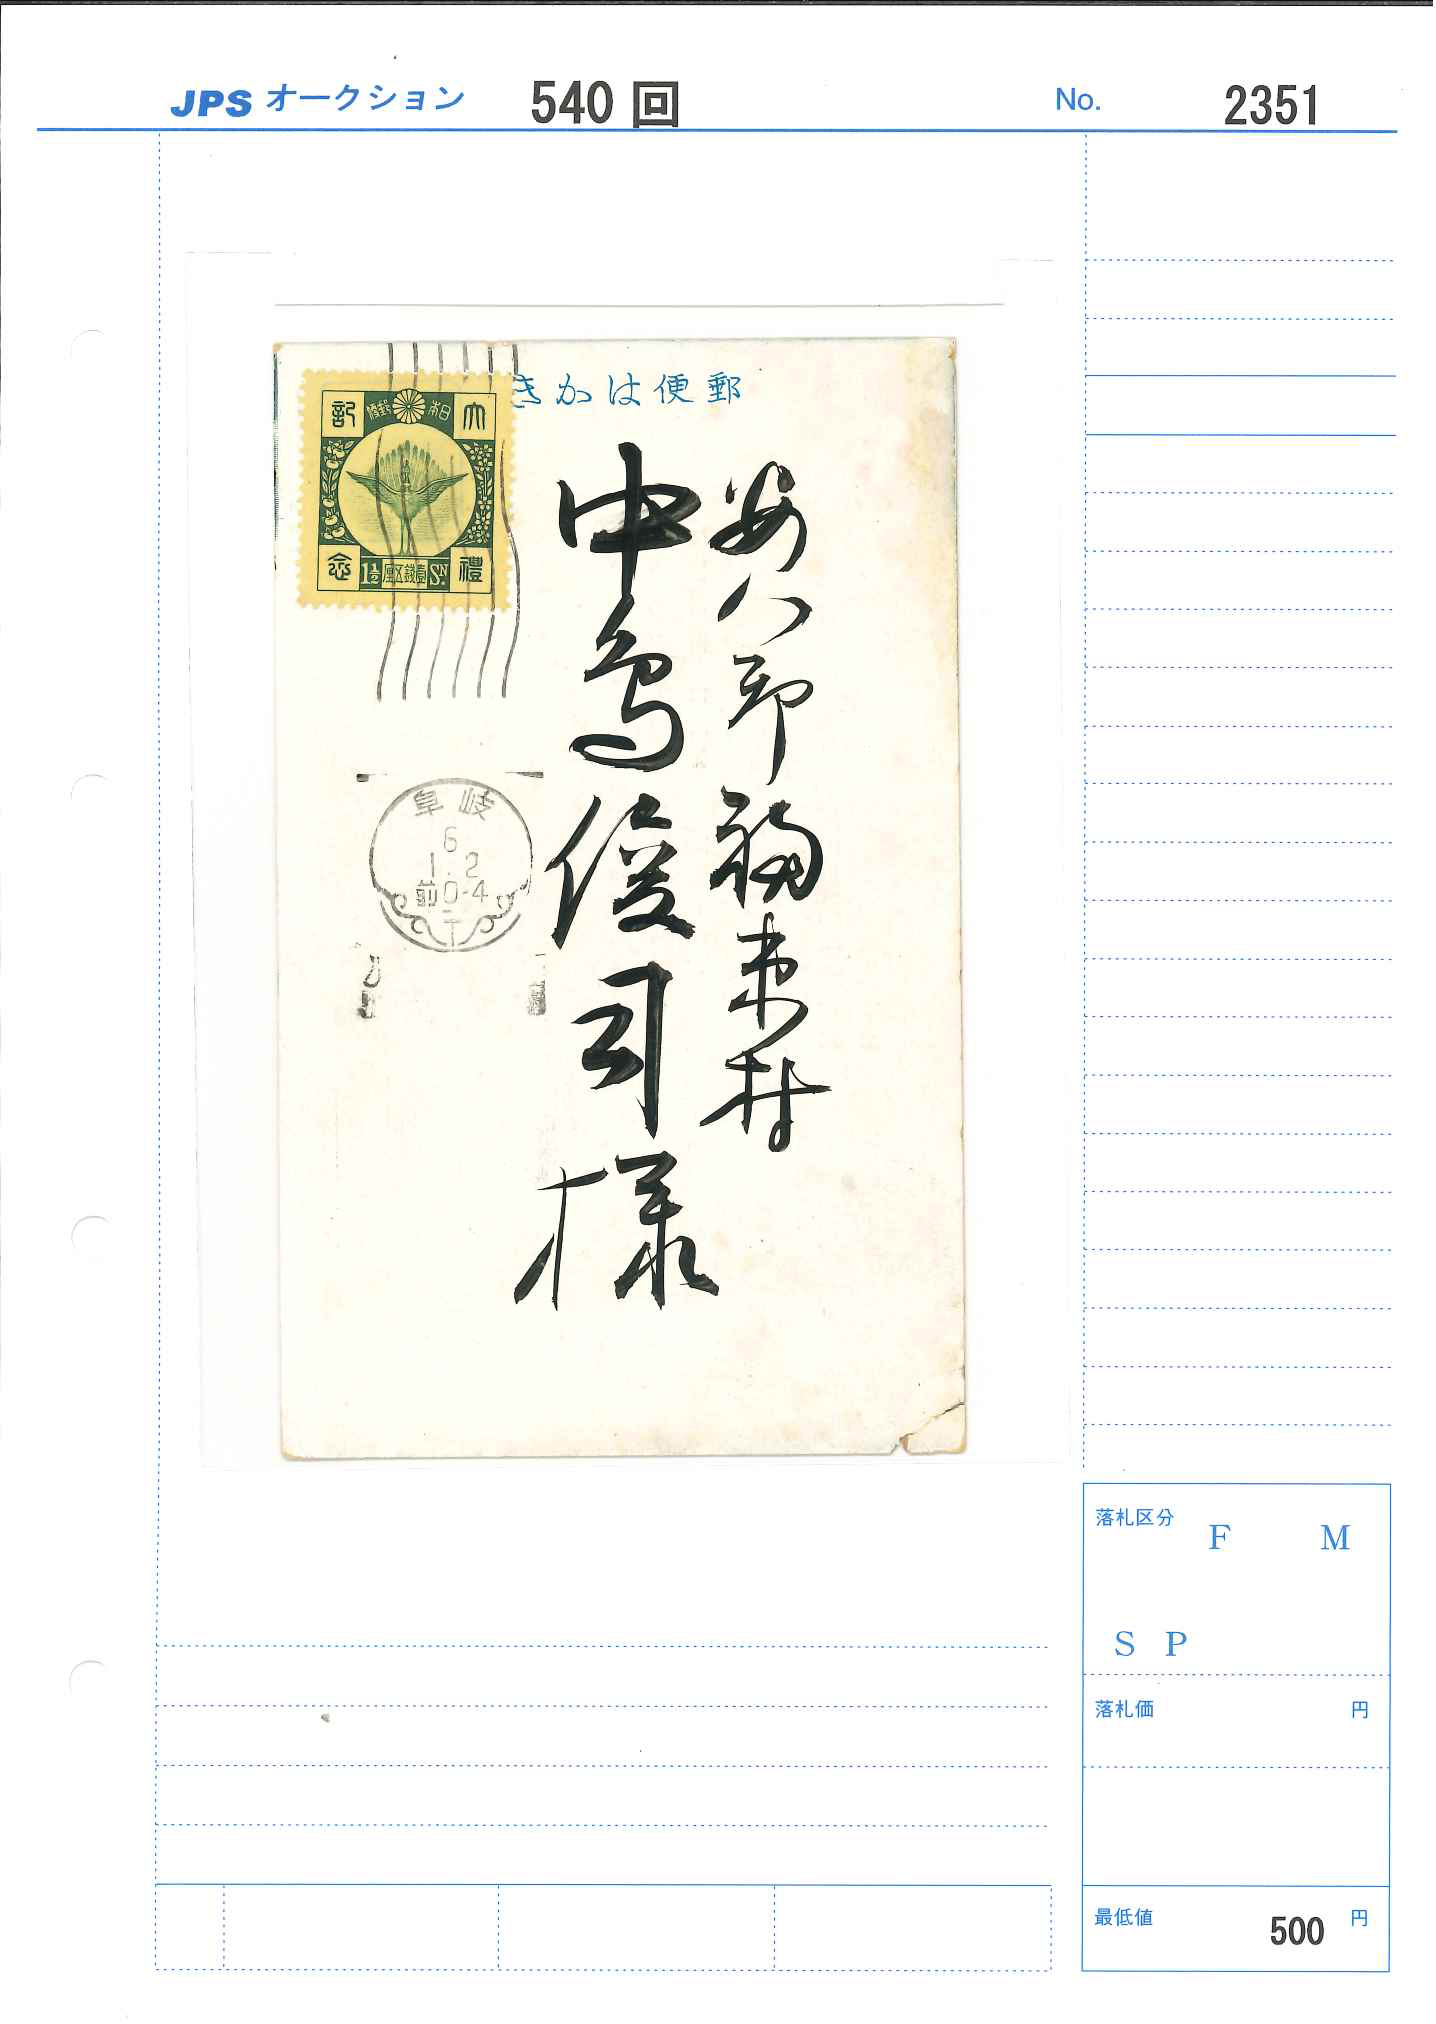 JPS オークション 540 回 No. 2351
郵便はかき
大記
日本郵便
禮念
1½ 壹錢五厘 SN.
安八郡福束村
中島俊司様
岐阜
6
1.2
前0-4
落札区分
F M
S P
落札価 円
最低値 500 円